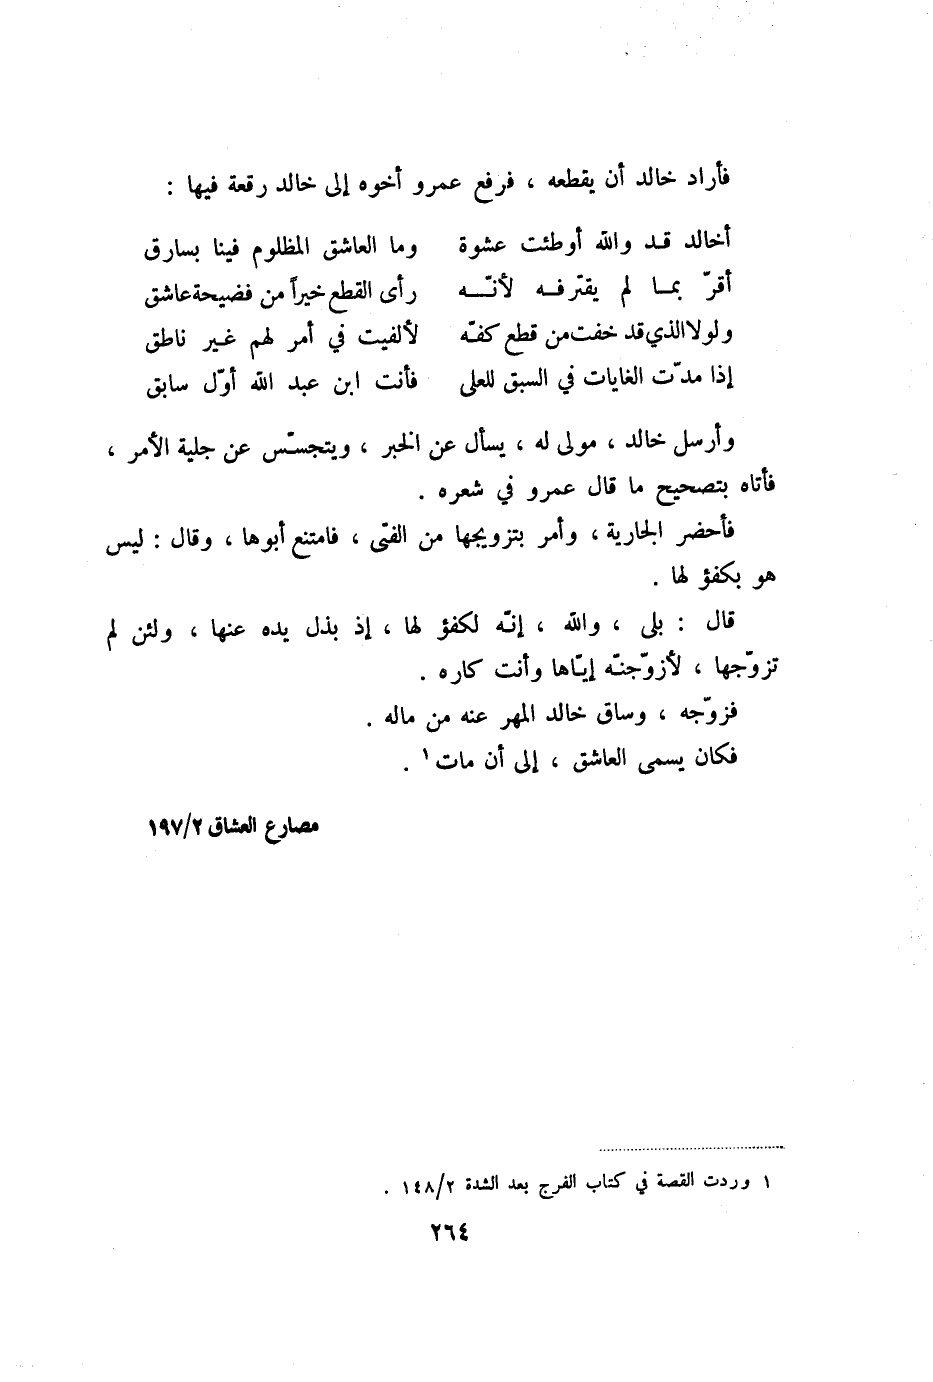 فأراد خالد أن يقطعه ، فرفع عمرو أخوه إلى خالد رقعة فيها :
أخالد قد والله أوطئت عشوة وما العاشق المظلوم فينا بسارق
أقرّ بما لم يقترفه لأنّه رأى القطع خيراً من فضيحة عاشق
ولولا الذي قد خفت من قطع كفّه لألفيت في أمر لهم غير ناطق
إذا مدّت الغايات في السبق للعلى فأنت ابن عبد الله أوّل سابق
وأرسل خالد ، مولى له ، يسأل عن الخبر ، ويتجسّس عن جلية الأمر ،
فأتاه بتصحيح ما قال عمرو في شعره .
فأحضر الجارية ، وأمر بتزويجها من الفتى ، فامتنع أبوها ، وقال : ليس
هو بكفؤ لها .
قال : بلى ، والله ، إنّه لكفؤ لها ، إذ بذل يده عنها ، ولئن لم
تزوّجها ، لأزوّجنّه إيّاها وأنت كاره .
فزوّجه ، وساق خالد المهر عنه من ماله .
فكان يسمى العاشق ، إلى أن مات ١ .
مصارع العشاق ١٩٧/٢
١ وردت القصة في كتاب الفرج بعد الشدة ١٤٨/٢ .
٢٦٤